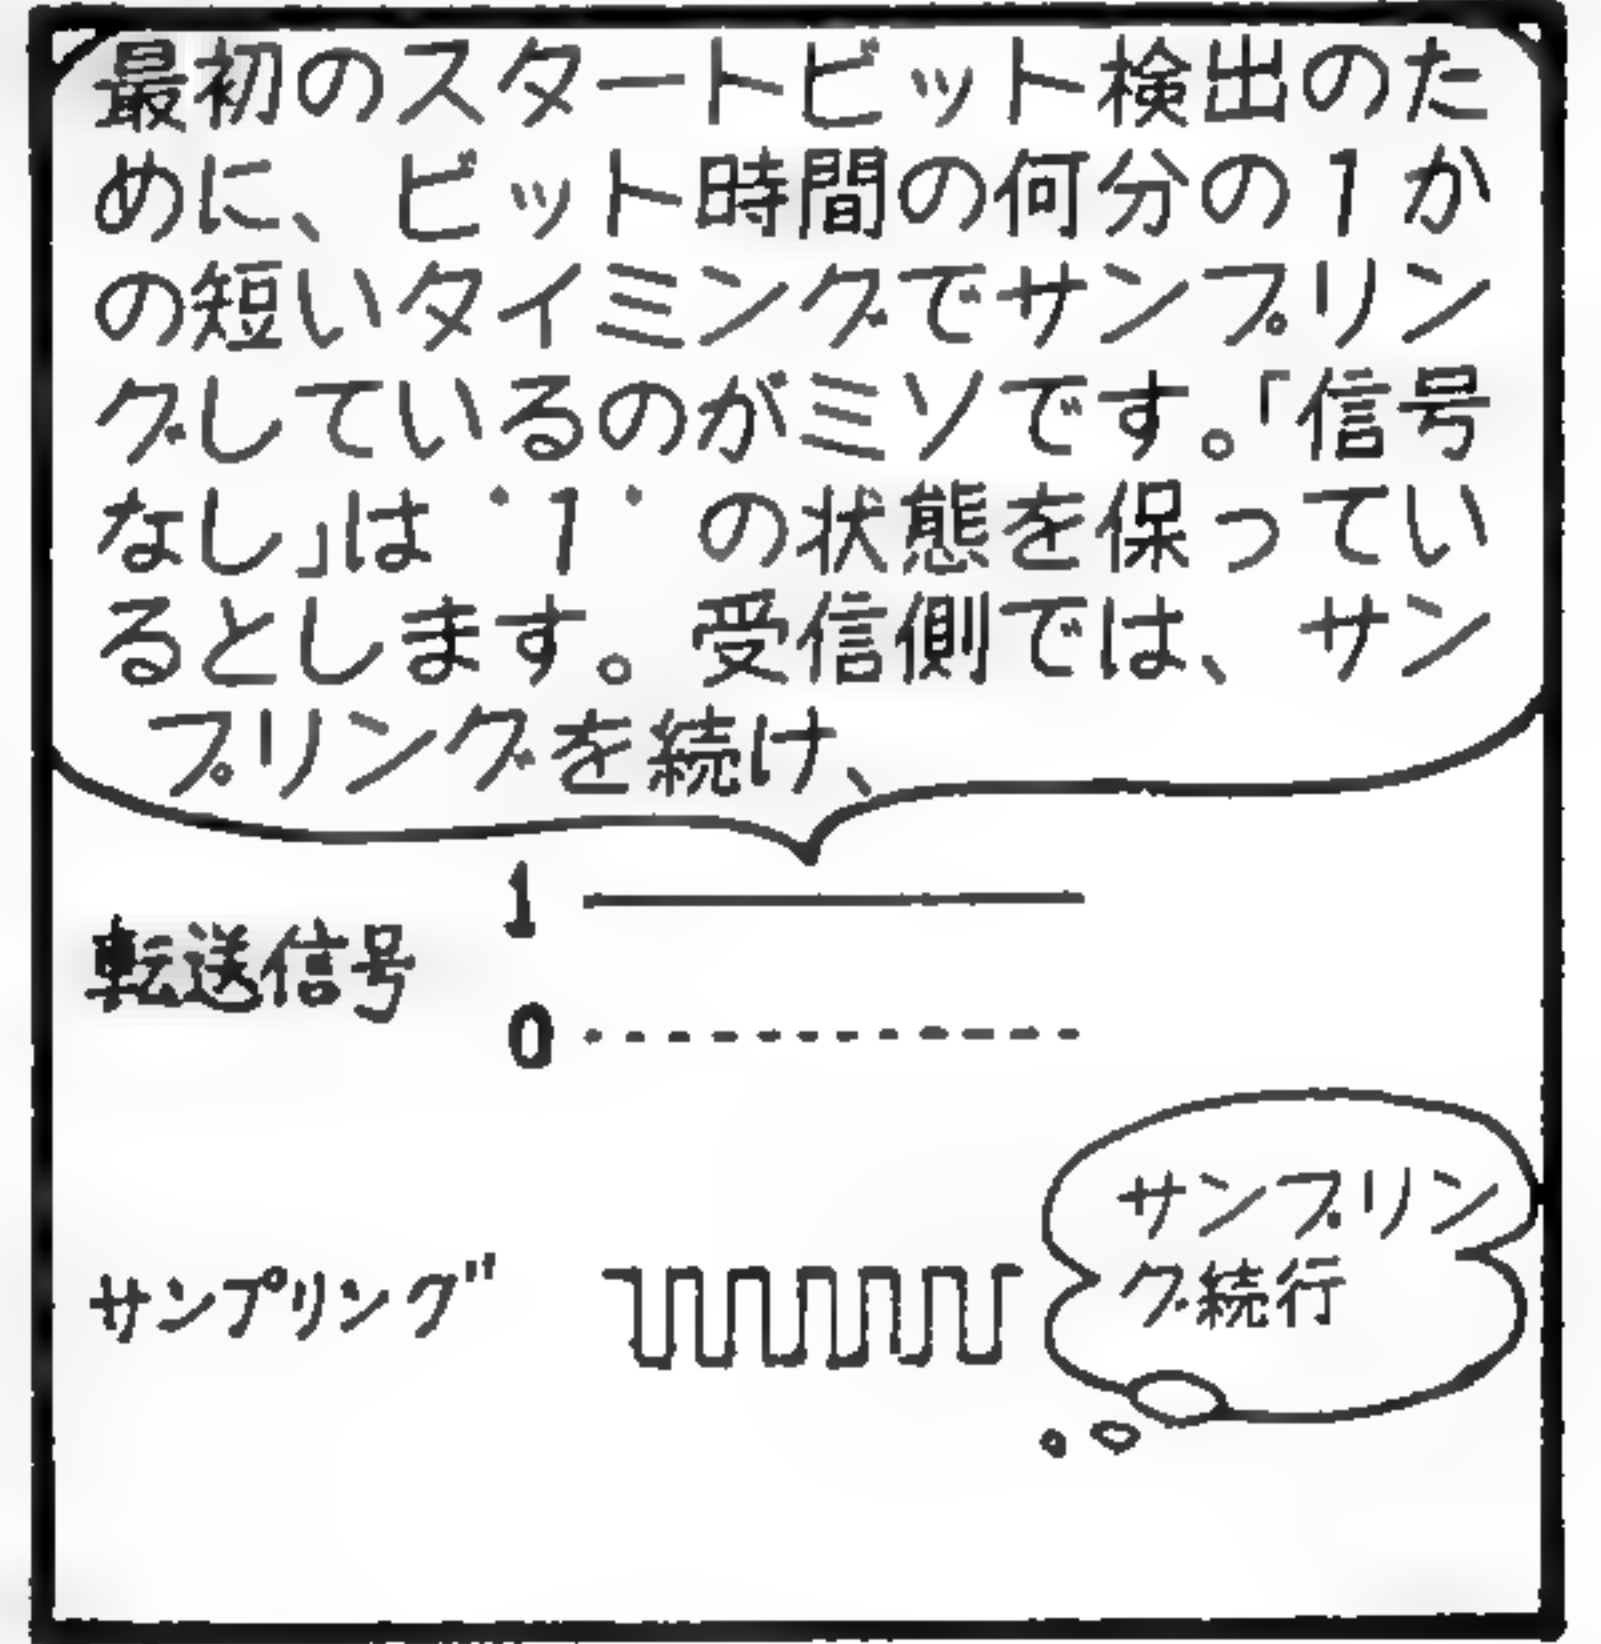 最初のスタートビット検出のた
めに、ビット時間の何分の1か
の短いタイミングでサンプリン
グしているのがミソです。「信号
なし」は '1' の状態を保ってい
るとします。受信側では、サン
プリングを続け、
1
転送信号
0
サンプリン
グ続行
サンプリング